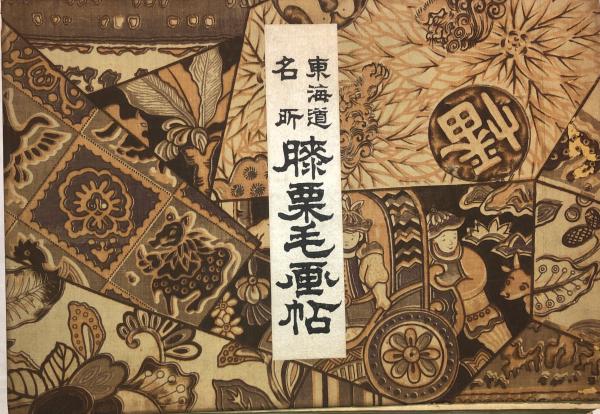 東海道
名所
膝栗毛画帖